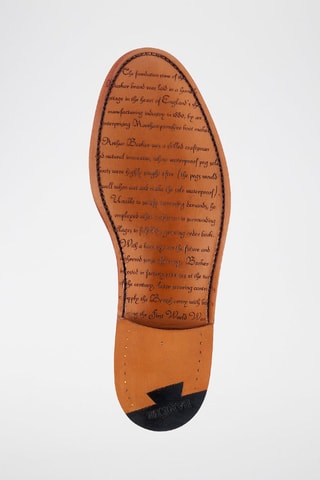 The foundation stone of the
Barker brand was laid in a small
village in the heart of England's shoe
manufacturing industry in 1880, by an
enterprising Northamptonshire boot maker.
Arthur Barker was a skilled craftsman
and natural innovator, whose waterproof peg sole
boots were highly sought after (the pegs would
swell when wet and make the sole waterproof)
Unable to satisfy increasing demands, he
employed other craftsmen in surrounding
villages to fulfil his growing order book.
With a keen eye on the future and
Barker
in factories at the turn
of the century, later securing contracts
supply the British army with
the First World War
BARKER